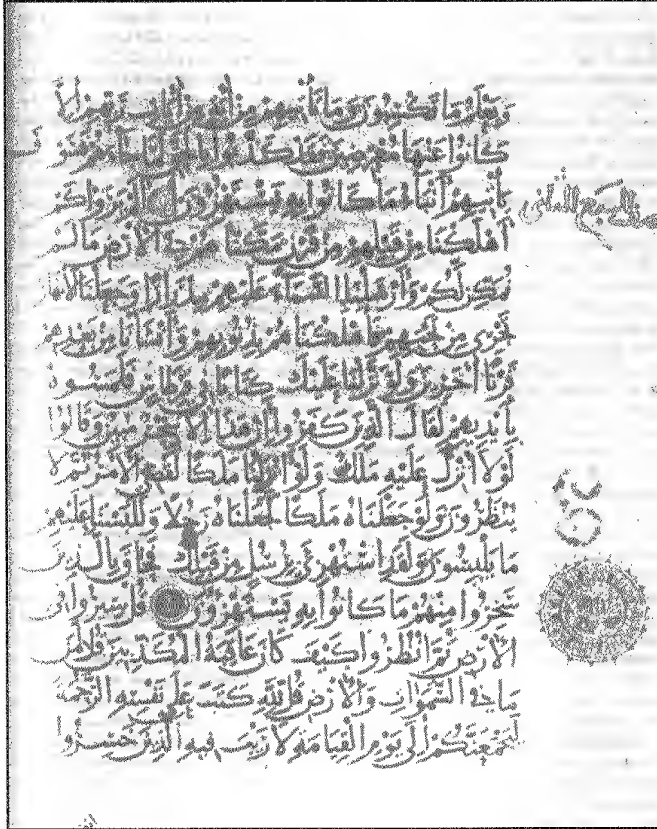 ويعلم ما تكسبون وما تأتيهم من آية من آيات ربهم إلا
كانوا عنها معرضين فقد كذبوا بالحق لما جاءهم فسوف
يأتيهم أنباء ما كانوا به يستهزؤن ألم يروا كم
أهلكنا من قبلهم من قرن مكناهم في الأرض ما لم
نمكن لكم وأرسلنا السماء عليهم مدرارا وجعلنا الأنهار
تجري من تحتهم فأهلكناهم بذنوبهم وأنشأنا من بعدهم
قرنا آخرين ولو نزلنا عليك كتابا في قرطاس فلمسوه
بأيديهم لقال الذين كفروا إن هذا إلا سحر مبين وقالوا
لولا أنزل عليه ملك ولو أنزلنا ملكا لقضي الأمر ثم لا
ينظرون ولو جعلناه ملكا لجعلناه رجلا وللبسنا عليهم
ما يلبسون ولقد استهزئ برسل من قبلك فحاق بالذين
سخروا منهم ما كانوا به يستهزؤن قل سيروا في
الأرض ثم انظروا كيف كان عاقبة المكذبين قل لمن
ما في السموات والأرض قل لله كتب على نفسه الرحمة
ليجمعنكم إلى يوم القيامة لا ريب فيه الذين خسروا
السبع الثاني